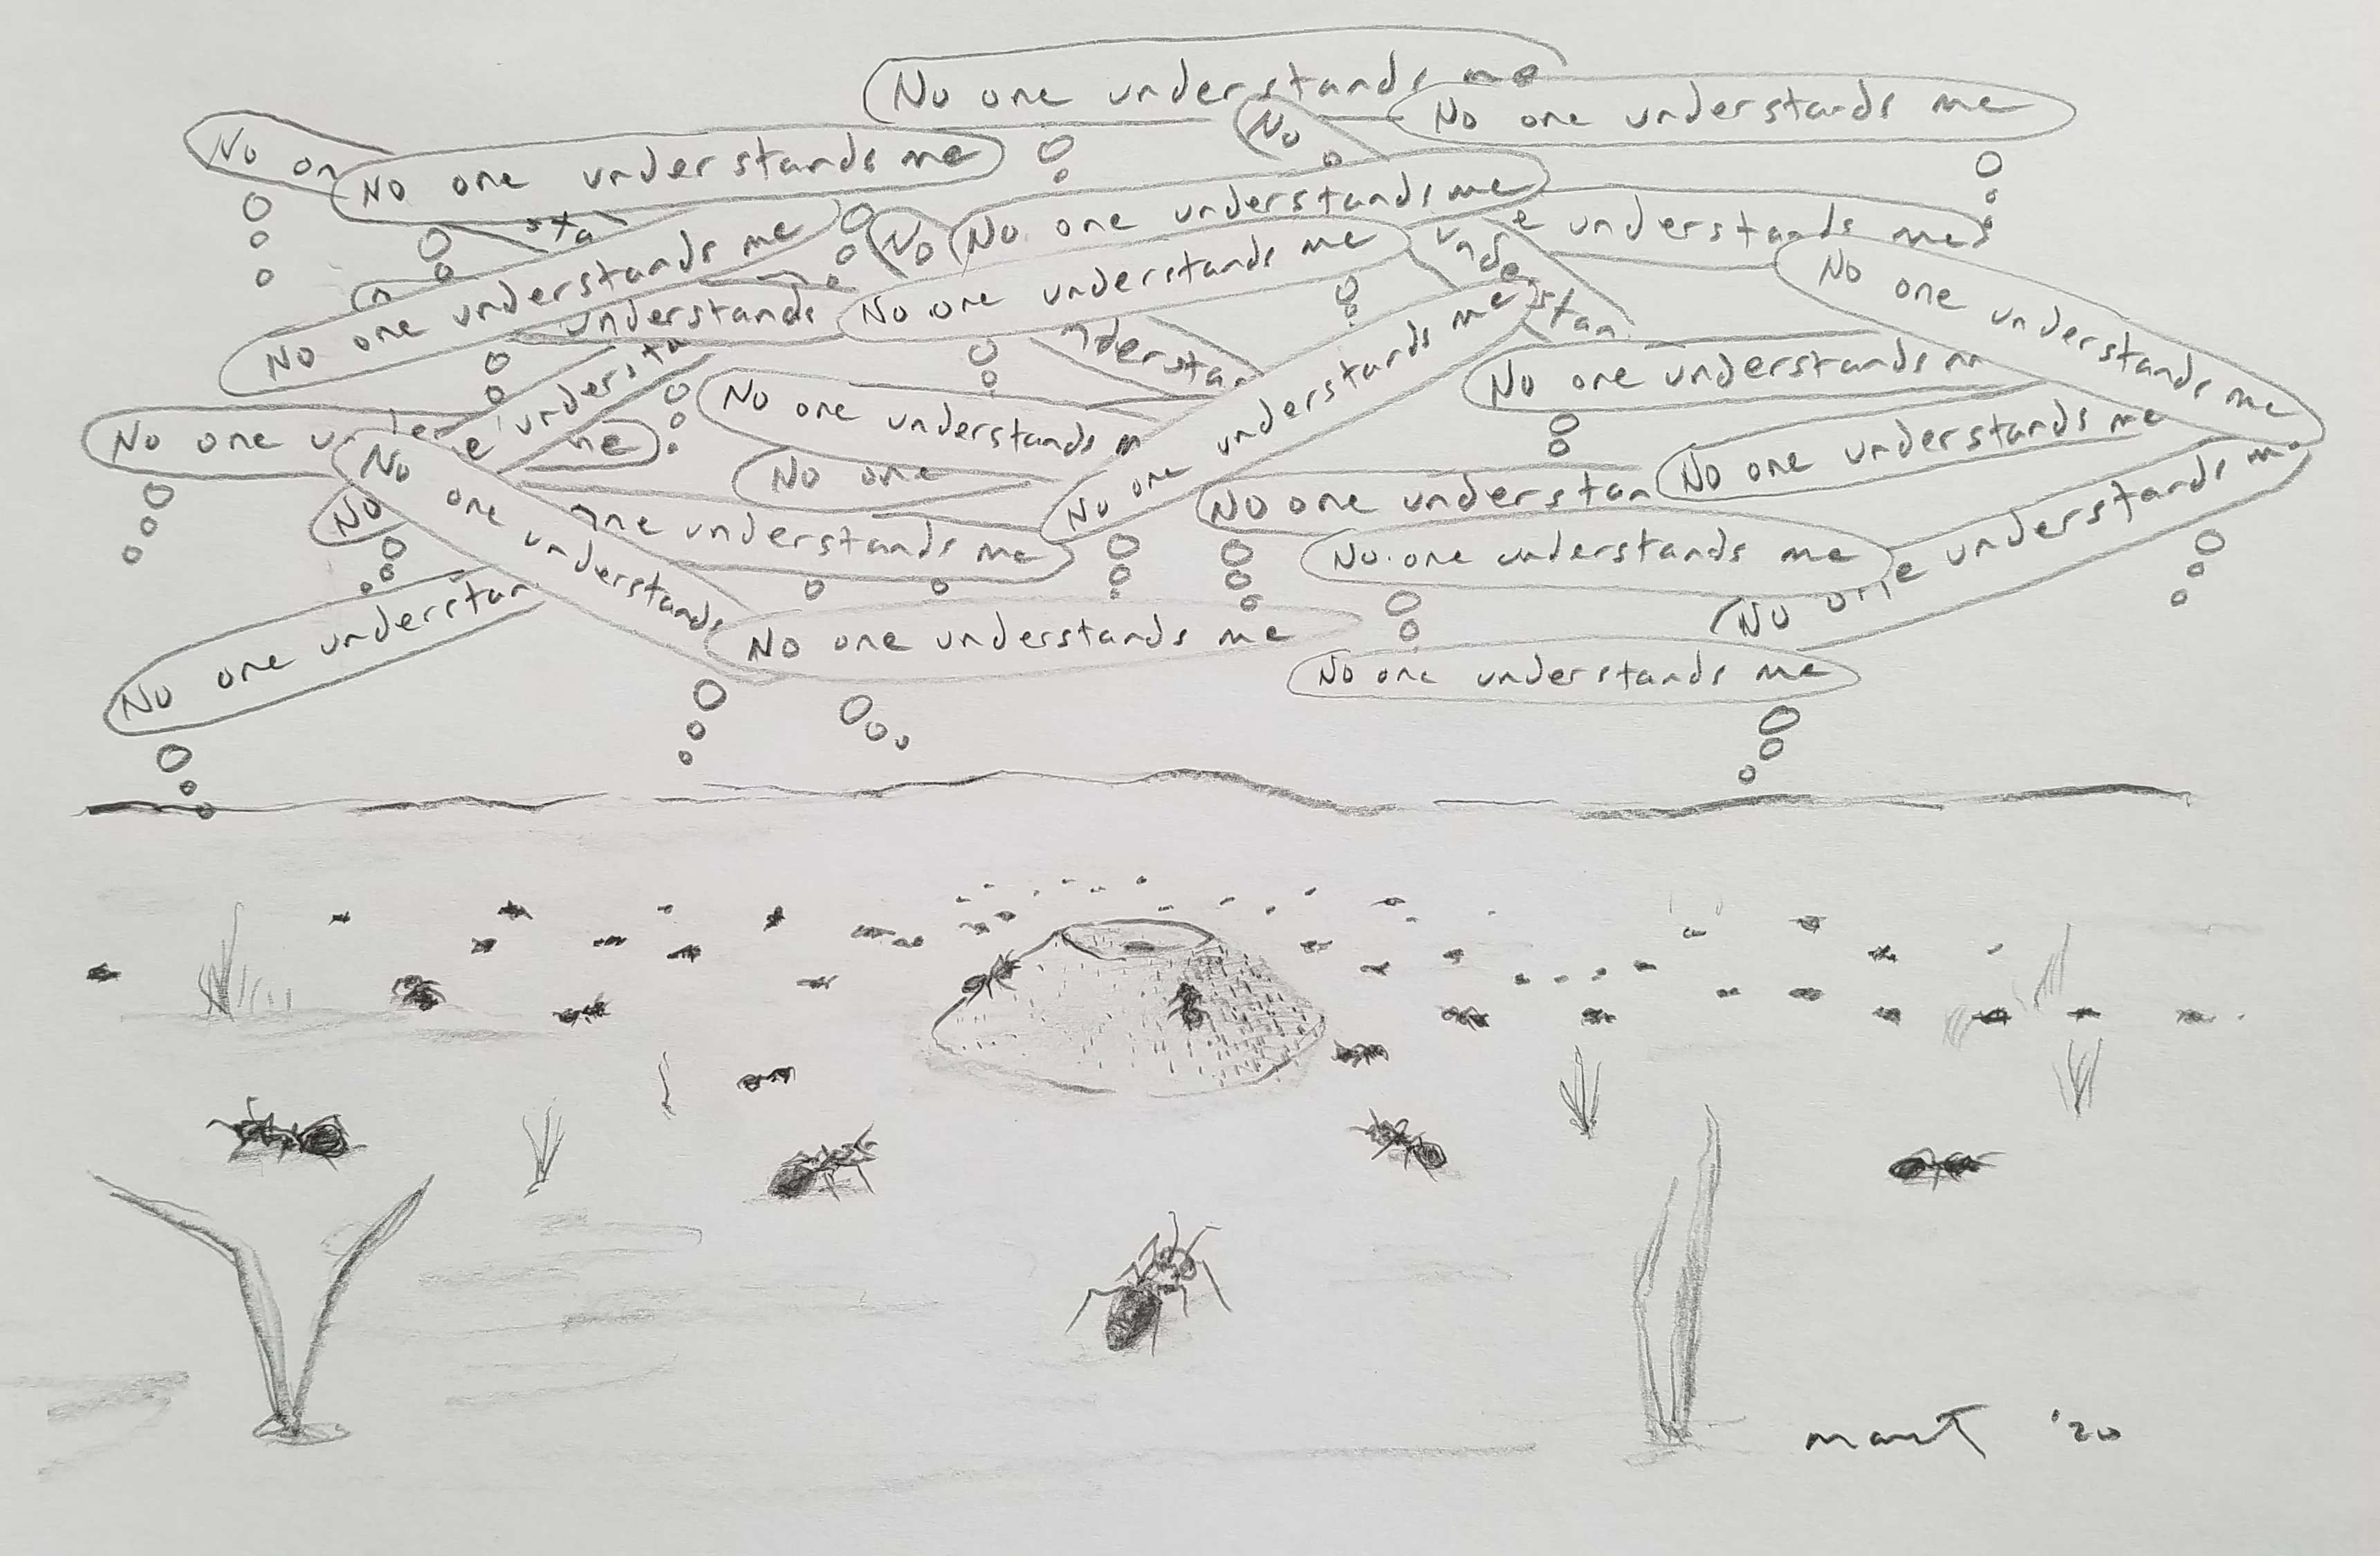 No one understands me
No one understands me
No
No on
No one understands me
sta
No one understands me
No
No one understands me
e understands me
understands
No one understands me
unde
stan
No one understands me
nderstan
No one understands me
No one understands
e understa
No one
me
No one understands
No one understands me
No one
No one understan
No one understands me
No
No one understands
ne understands me
No one understands me
No one understands
No one understan
No one understands me
No one understands me
mant '20